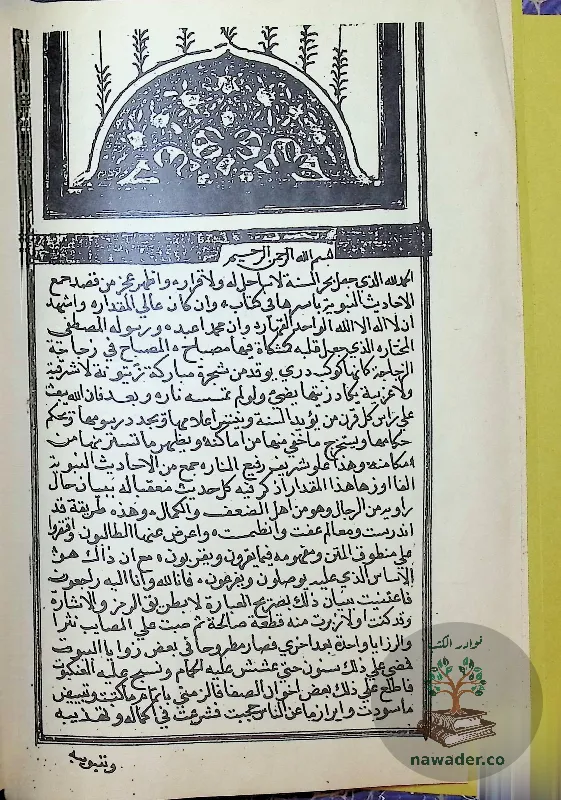 بسم الله الرحمن الرحيم
الحمد لله الذي جعل بحر السنة لا ساحل له ولا قرار، واظهر عجز من قصد جمع
الاحاديث النبوية باسرها في كتاب، وان كان عالي المقدار، واشهد
ان لا اله الا الله الواحد القهار، وان محمدا عبده ورسوله المصطفى
المختار، الذي جعل قلبه كمشكاة فيها مصباح، المصباح في زجاجة
الزجاجة كانها كوكب دري يوقد من شجرة مباركة زيتونة لا شرقية
ولا غربية يكاد زيتها يضيء ولو لم تمسسه نار، وبعد فان الله يبعث
على راس كل قرن من يؤيد السنة وينشر اعلامها ويجدد دروسها ويحكم
احكامها ويستخرج ما خفي منها من اماكنه ويظهر ما تستر منها من
مكامنه، وهذا علو شريف رفيع المنار، جمع من الاحاديث النبوية
الفا او زها هذا المقدار، اذكر فيه كل حديث معقبا له ببيان حال
راويه من الرجال وهو من اهل الضعف والكمال، وهذه طريقة قد
اندرست ومعالم عفت وانطمست، واعرض عنها الطالبون واقتصروا
على منطوق المتن ومفهومه فيما يقرون ويقربون، مع ان ذاك هو
الاساس الذي عليه يوصلون ويفرعون، فانا لله وانا اليه راجعون
فاعتنيت ببيان ذلك بصريح العبارة لا بطريق الرمز والاشارة
وقد كنت اولا برزت منه قطعة صالحة ثم صبت علي المصايب تترا
والرزايا واحدة بعد اخرى فصار مطروحا في بعض زوايا البيوت
فمضى على ذلك سنون حتى عشش عليه الحمام ونسج عليه العنكبوت
فاطلع على ذلك بعض اخوان الصفا فالزمني باتمام ما كنت وتبييض
ما سودت وابراز ما عن الناس حجبت فشرعت في اكماله وتهذيبه
وتبويبه
نوادر الكتب
nawader.co